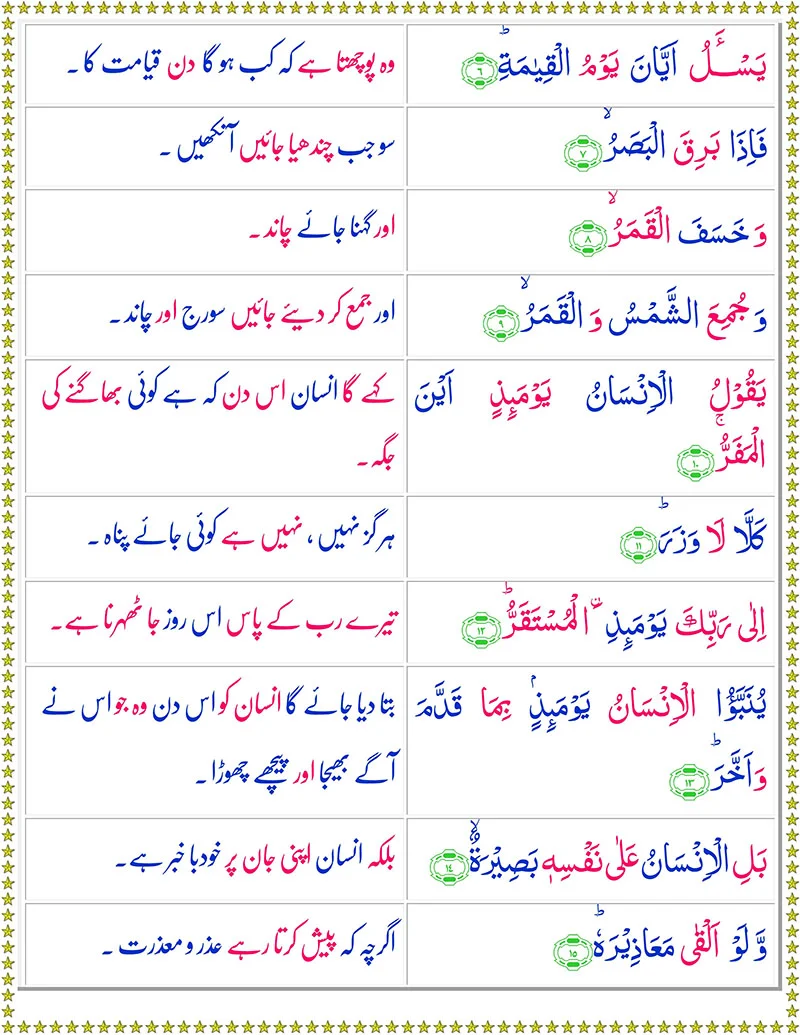 يَسْـَٔلُ اَيَّانَ يَوْمُ الْقِيٰمَةِؕ ۶
وہ پوچھتا ہے کہ کب ہو گا دن قیامت کا ۔
فَاِذَا بَرِقَ الْبَصَرُۙ ۷
سو جب چندھیا جائیں آنکھیں ۔
وَ خَسَفَ الْقَمَرُۙ ۸
اور گہنا جائے چاند ۔
وَ جُمِعَ الشَّمْسُ وَ الْقَمَرُۙ ۹
اور جمع کر دیئے جائیں سورج اور چاند ۔
يَقُوْلُ الْاِنْسَانُ يَوْمَىِٕذٍ اَيْنَ
الْمَفَرُّۚ ۱۰
کہے گا انسان اس دن کہ ہے کوئی بھاگنے کی
جگہ ۔
كَلَّا لَا وَزَرَؕ ۱۱
ہرگز نہیں ، نہیں ہے کوئی جائے پناہ ۔
اِلٰى رَبِّكَ يَوْمَىِٕذِ ۟الْمُسْتَقَرُّؕ ۱۲
تیرے رب کے پاس اس روز جا ٹھہرنا ہے ۔
يُنَبَّؤُا الْاِنْسَانُ يَوْمَىِٕذٍۭ بِمَا قَدَّمَ
وَ اَخَّرَؕ ۱۳
بتا دیا جائے گا انسان کو اس دن وہ جو اس نے
آگے بھیجا اور پیچھے چھوڑا ۔
بَلِ الْاِنْسَانُ عَلٰى نَفْسِهٖ بَصِيْرَةٌۙ ۱۴
بلکہ انسان اپنی جان پر خود با خبر ہے ۔
وَّ لَوْ اَلْقٰى مَعَاذِيْرَهٗؕ ۱۵
اگرچہ کہ پیش کرتا رہے عذر و معذرت ۔